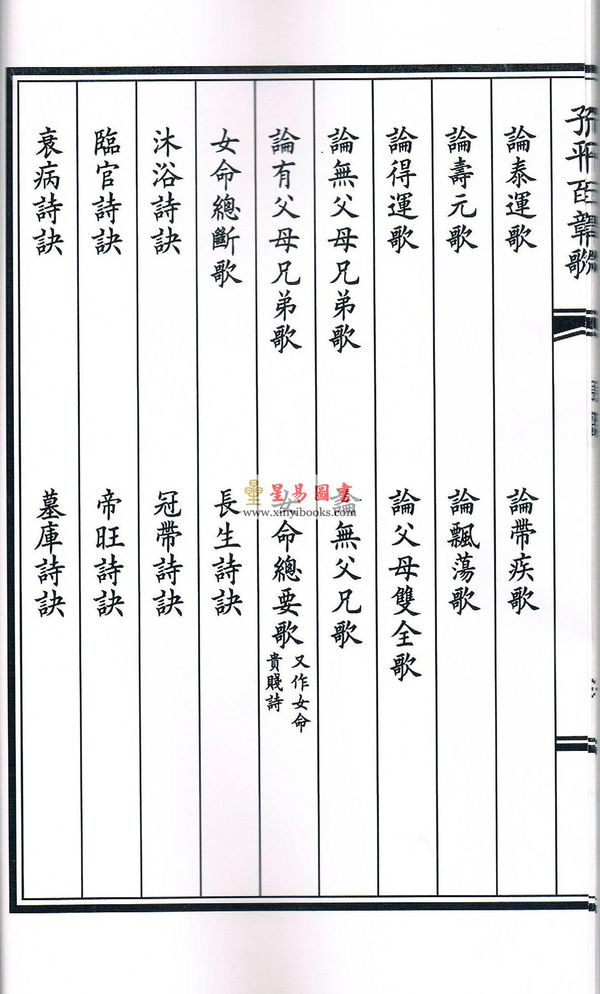 子平百章歌
論泰運歌
論帶疾歌
論壽元歌
論飄蕩歌
論得運歌
論父母雙全歌
論無父母兄弟歌
論無父兄歌
論有父母兄弟歌
女命總要歌
又作女命
貴賤詩
女命總斷歌
長生詩訣
沐浴詩訣
冠帶詩訣
臨官詩訣
帝旺詩訣
衰病詩訣
墓庫詩訣
星易圖書
www.xinyibooks.com